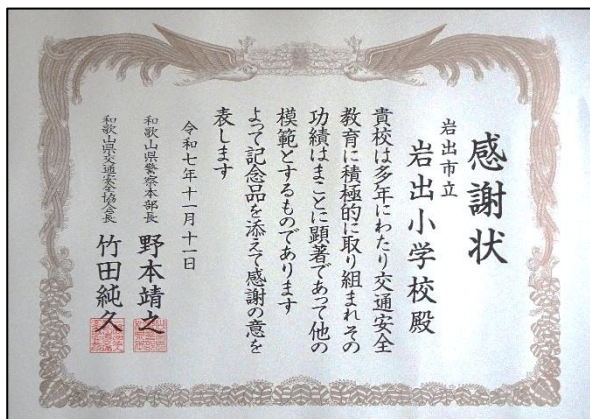 感謝状
岩出市立
岩出小学校殿
貴校は多年にわたり交通安全
教育に積極的に取り組まれその
功績はまことに顕著であって他の
模範とするものであります
よって記念品を添えて感謝の意を
表します
令和七年十一月十一日
和歌山県警察本部長
野本靖之
和歌山県交通安全協会長
竹田純久